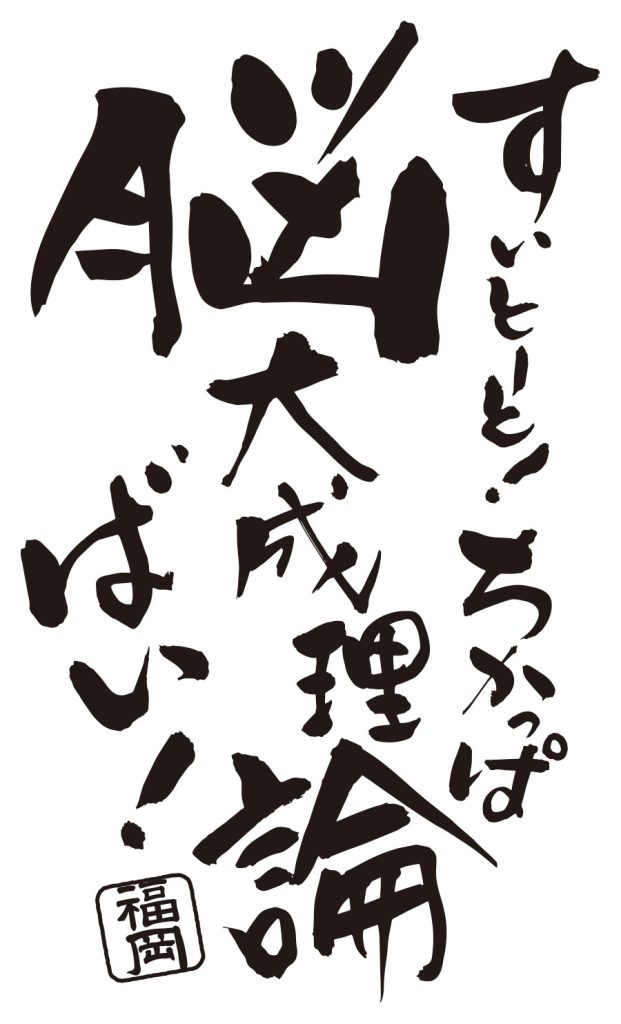 すぃとーと!ちかっぱ
脳大成理論
ばい!
福岡